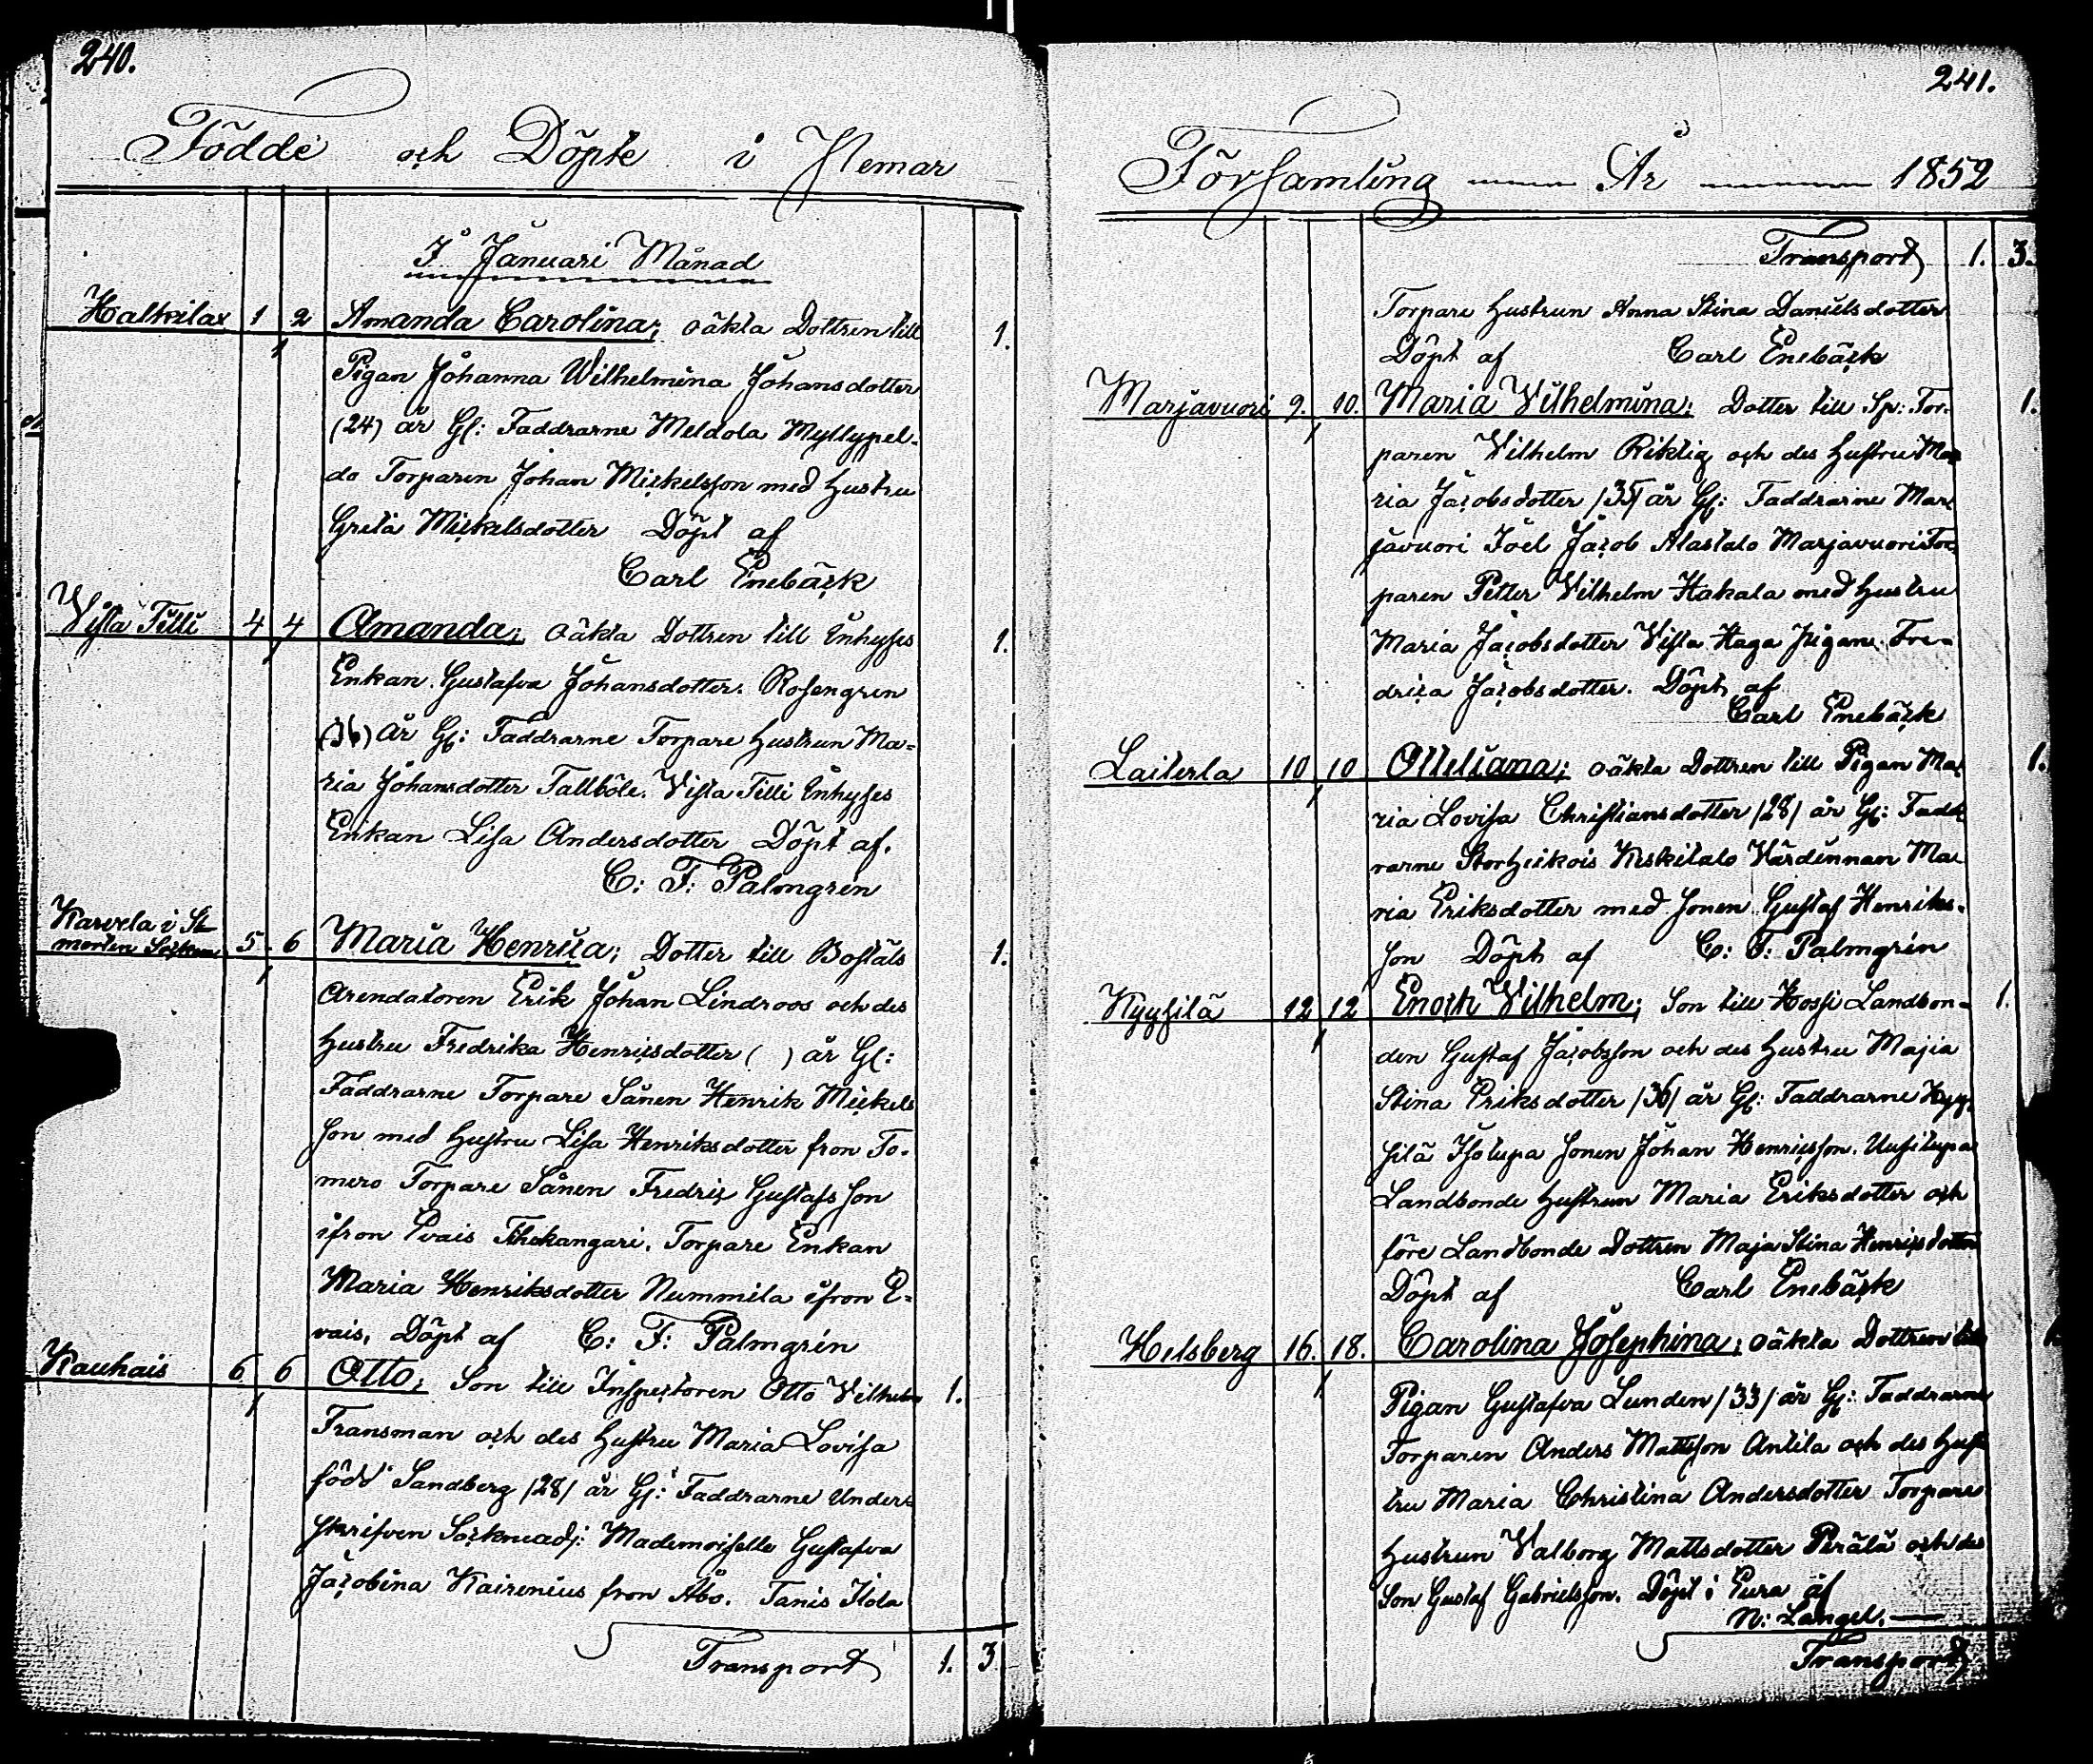 240.
Födde och Döpte i Nemar
I Januari Månad
Halkilax 1 2 Amanda Carolina; oäkta Dottren till 1.
Pigan Johanna Wilhelmina Johansdotter
(24) år Gl: Faddrarne Meldola Myllypel-
do Torparen Johan Mickelsson med hustru
Greta Mickelsdotter Döpt af
Carl Enebäck
Vista Tilli 4 4 Amanda; oäkta Dottren till Inhyses 1.
Enkan Gustafva Johansdotter Rosengren
(36) år Gl: Faddrarne Torpare hustrun Ma-
ria Johansdotter Tallböle. Vista Tilli Inhyses
Enkan Lisa Andersdotter Döpt af.
C: F: Palmgrén
Karvela i St
merten Socken 5 6 Maria Henrica; Dotter till Boställs 1.
Arendatoren Erik Johan Lindroos och des
hustru Fredrika Henricsdotter ( ) år Gl:
Faddrarne Torpare Sånen Henrik Mickels
son med hustru Lisa Henriksdotter fron To-
mero Torpare Sånen Fredric Gustafsson
ifron Evais Torpare Enkan
Maria Henriksdotter Nummila ifron E-
vais, Döpt af C: F: Palmgrén
Kauhais 6 6 Otto; Son till Inspectoren Otto Vilhelm 1.
Fransman och des hustru Maria Lovisa
född Sandberg /28/ år Gl: Faddrarne Under-
skrifven Sockneadj: Mademoiselle Gustafva
Jacobina Kairenius fron Åbo. Tanis Ilola
Transport 1. 3
241.
Församling År 1852
Transport 1. 3.
Torpare hustrun Anna Stina Danielsdotter
Döpt af Carl Enebäck
Marjavuori 9. 10. Maria Vilhelmina; Dotter till Sp: Tor- 1.
paren Vilhelm Riktig och des hustru Ma
ria Jacobsdotter /35/ år Gl: Faddrarne Mar
javuori Joel Jacob Alastalo Marjavuori Tor
paren Petter Vilhelm Hakala med hustru
Maria Jacobsdotter Vista Haga Pigan Fre-
drica Jacobsdotter. Döpt af
Carl Enebäck
Laiterla 10 10 Otteliana; oäkta Dottren till Pigan Ma 1.
ria Lovisa Christiansdotter /28/ år Gl: Fadd
rarne Storheikois Keskitalo Värdinnan Ma
ria Eriksdotter med sonen Gustaf Henriks-
son Döpt af C: F: Palmgrén
Kyysilä 12 12 Enoch Vilhelm; Son till Hossi Landbon- 1.
den Gustaf Jacobsson och des hustru Majia
Stina Eriksdotter /36/ år Gl: Faddrarne Kyy-
silä Isotupa sonen Johan Henricsson. Uusitupa
Landbonde hustrun Maria Eriksdotter och
före Landbonde Dottren Maja Stina Henricsdotter
Döpt af Carl Enebäck
Helsberg 16. 18. Carolina Josephina; oäkta Dottren till 1.
Pigan Gustafva Lunden /33/ år Gl: Faddrarne
Torparen Anders Mattsson Antila och des hust
tru Maria Christina Andersdotter Torpare
hustrun Valborg Mattsdotter Perälä och des
Son Gustaf Gabrielsson. Döpt i Eura af
N: Langel.
Transport